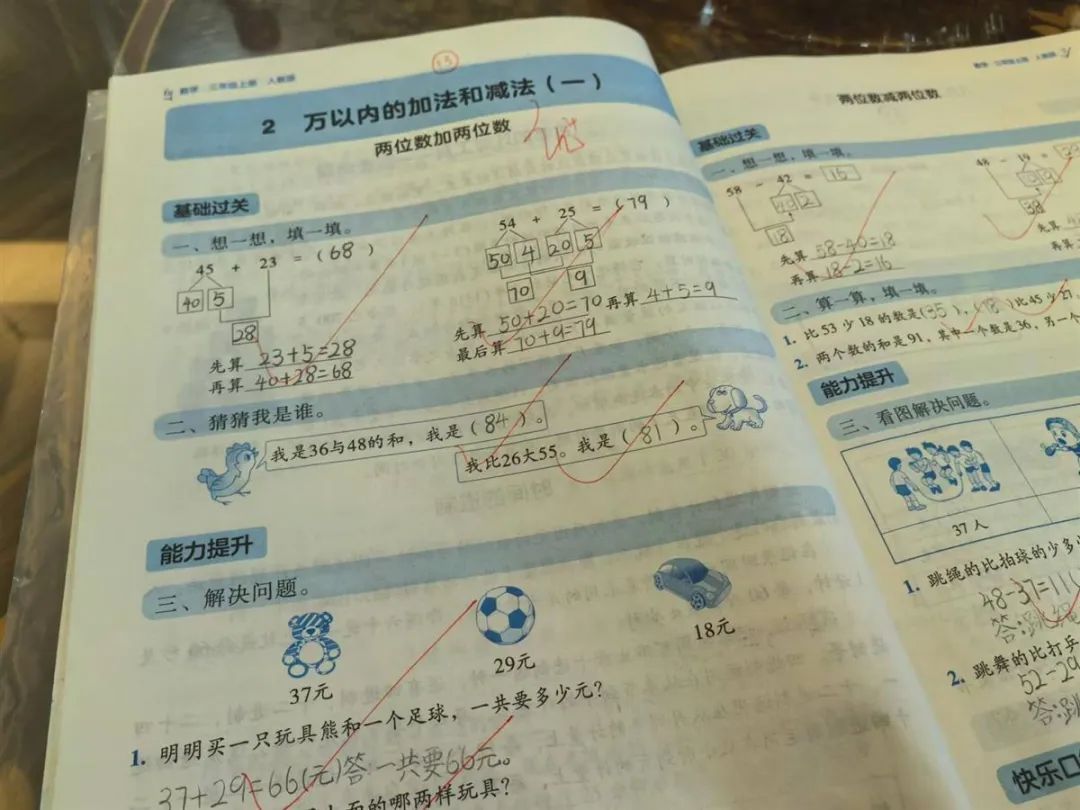 13
数学 三年级上册 人教版
2 万以内的加法和减法(一)
两位数加两位数
基础过关
一、想一想,填一填。
45 + 23 = (68)
40 5
28
先算 23+5=28
再算 40+28=68
54 + 25 = (79)
50 4 20 5
70 9
先算 50+20=70 再算 4+5=9
最后算 70+9=79
二、猜猜我是谁。
我是36与48的和,我是(84)。
我比26大55。我是(81)。
能力提升
三、解决问题。
37元
29元
18元
1. 明明买一只玩具熊和一个足球,一共要多少元?
37+29=66(元)答:一共要66元。
面的哪两样玩具?
两位数减两位数
基础过关
一、想一想,填一填。
58 - 42 = 16
2
18
先算 58-40=18
再算 18-2=16
48 - 19 =
38
先算
再算
二、算一算,填一填。
1. 比53少18的数是(35),(18)比45少27。
2. 两个数的和是91,其中一个数是36,另一个
能力提升
三、看图解决问题。
37人
1. 跳绳的比拍球的少多少
48-37=11(
答:跳绳
2. 跳舞的比打乒
52-29
答:跳
快乐口